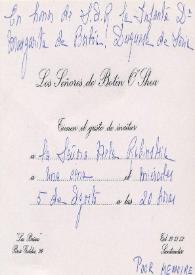 En honor de S.A.R. la Infanta Dª
Margarita de Borbón, Duquesa de Soria
Los Señores de Botín O'Shea
Tienen el gusto de invitar
a la Señora Aída Rubinstein
a una cena el miércoles
5 de Agosto a las 20 horas
"La Reina"
Pérez Galdós, 30
Tel.
Santander
POUR MEMOIRE